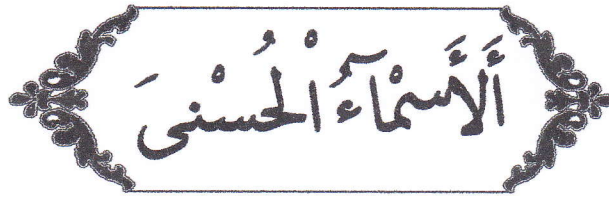 أَلْأَسْمَآءُ الْحُسْنىَ